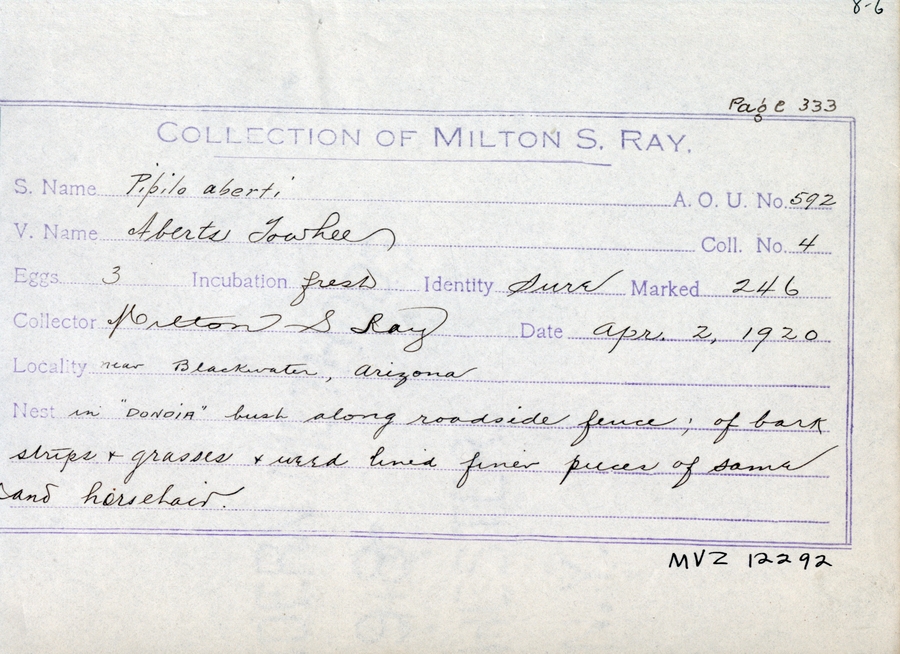 8-6
Page 333
COLLECTION OF MILTON S. RAY.
S. Name Pipilo aberti A. O. U. No. 592
V. Name Aberts Towhee Coll. No. 4
Eggs 3 Incubation fresh Identity Sure Marked 246
Collector Milton S Ray Date Apr. 2, 1920
Locality near Blackwater, Arizona
Nest in "DONDIA" bush along roadside fence; of bark
strips + grasses + weed lined finer pieces of same
and horsehair.
MVZ 12292